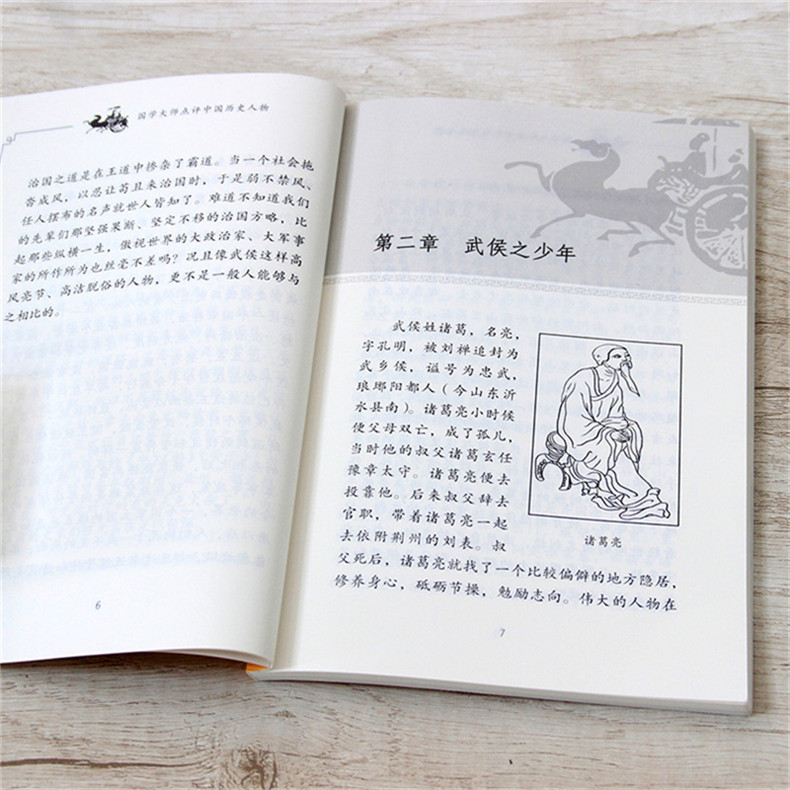 国学大师点评中国历史人物
治国之道是在王道中掺杂了霸道。当一个社会拖
沓成风，以忍让苟且来治国时，于是弱不禁风、
任人摆布的名声就世人皆知了。难道不知道我们
的先辈们那坚强果断、坚定不移的治国方略，比
起那些纵横一生，傲视世界的大政治家、大军事
家的所作所为也丝毫不差吗？况且像武侯这样高
风亮节、高洁脱俗的人物，更不是一般人能够与
之相比的。
6
第二章 武侯之少年
武侯姓诸葛，名亮，
字孔明，被刘禅追封为
武乡侯，谥号为忠武，
琅琊阳都人（今山东沂
水县南）。诸葛亮小时候
便父母双亡，成了孤儿，
当时他的叔父诸葛玄任
豫章太守。诸葛亮便去
投靠他。后来叔父辞去
官职，带着诸葛亮一起
去依附荆州的刘表。叔
父死后，诸葛亮就找了一个比较偏僻的地方隐居，
修养身心，砥砺节操，勉励志向。伟大的人物在
诸葛亮
7